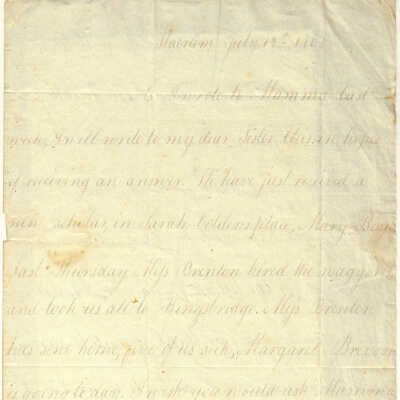 July 12th
I wrote to Mamma last
week, I will write to my dear Sister this in hopes
of receiving an answer. We have just received a
new scholar, in Sarah Coldens place, Mary
Last Thursday Miss Brenton hired the waggon
and took us all to Kingsbridge. Miss Brenton
has sent home, five of us sick, Margaret
is going to day. I wish you would ask Mamma